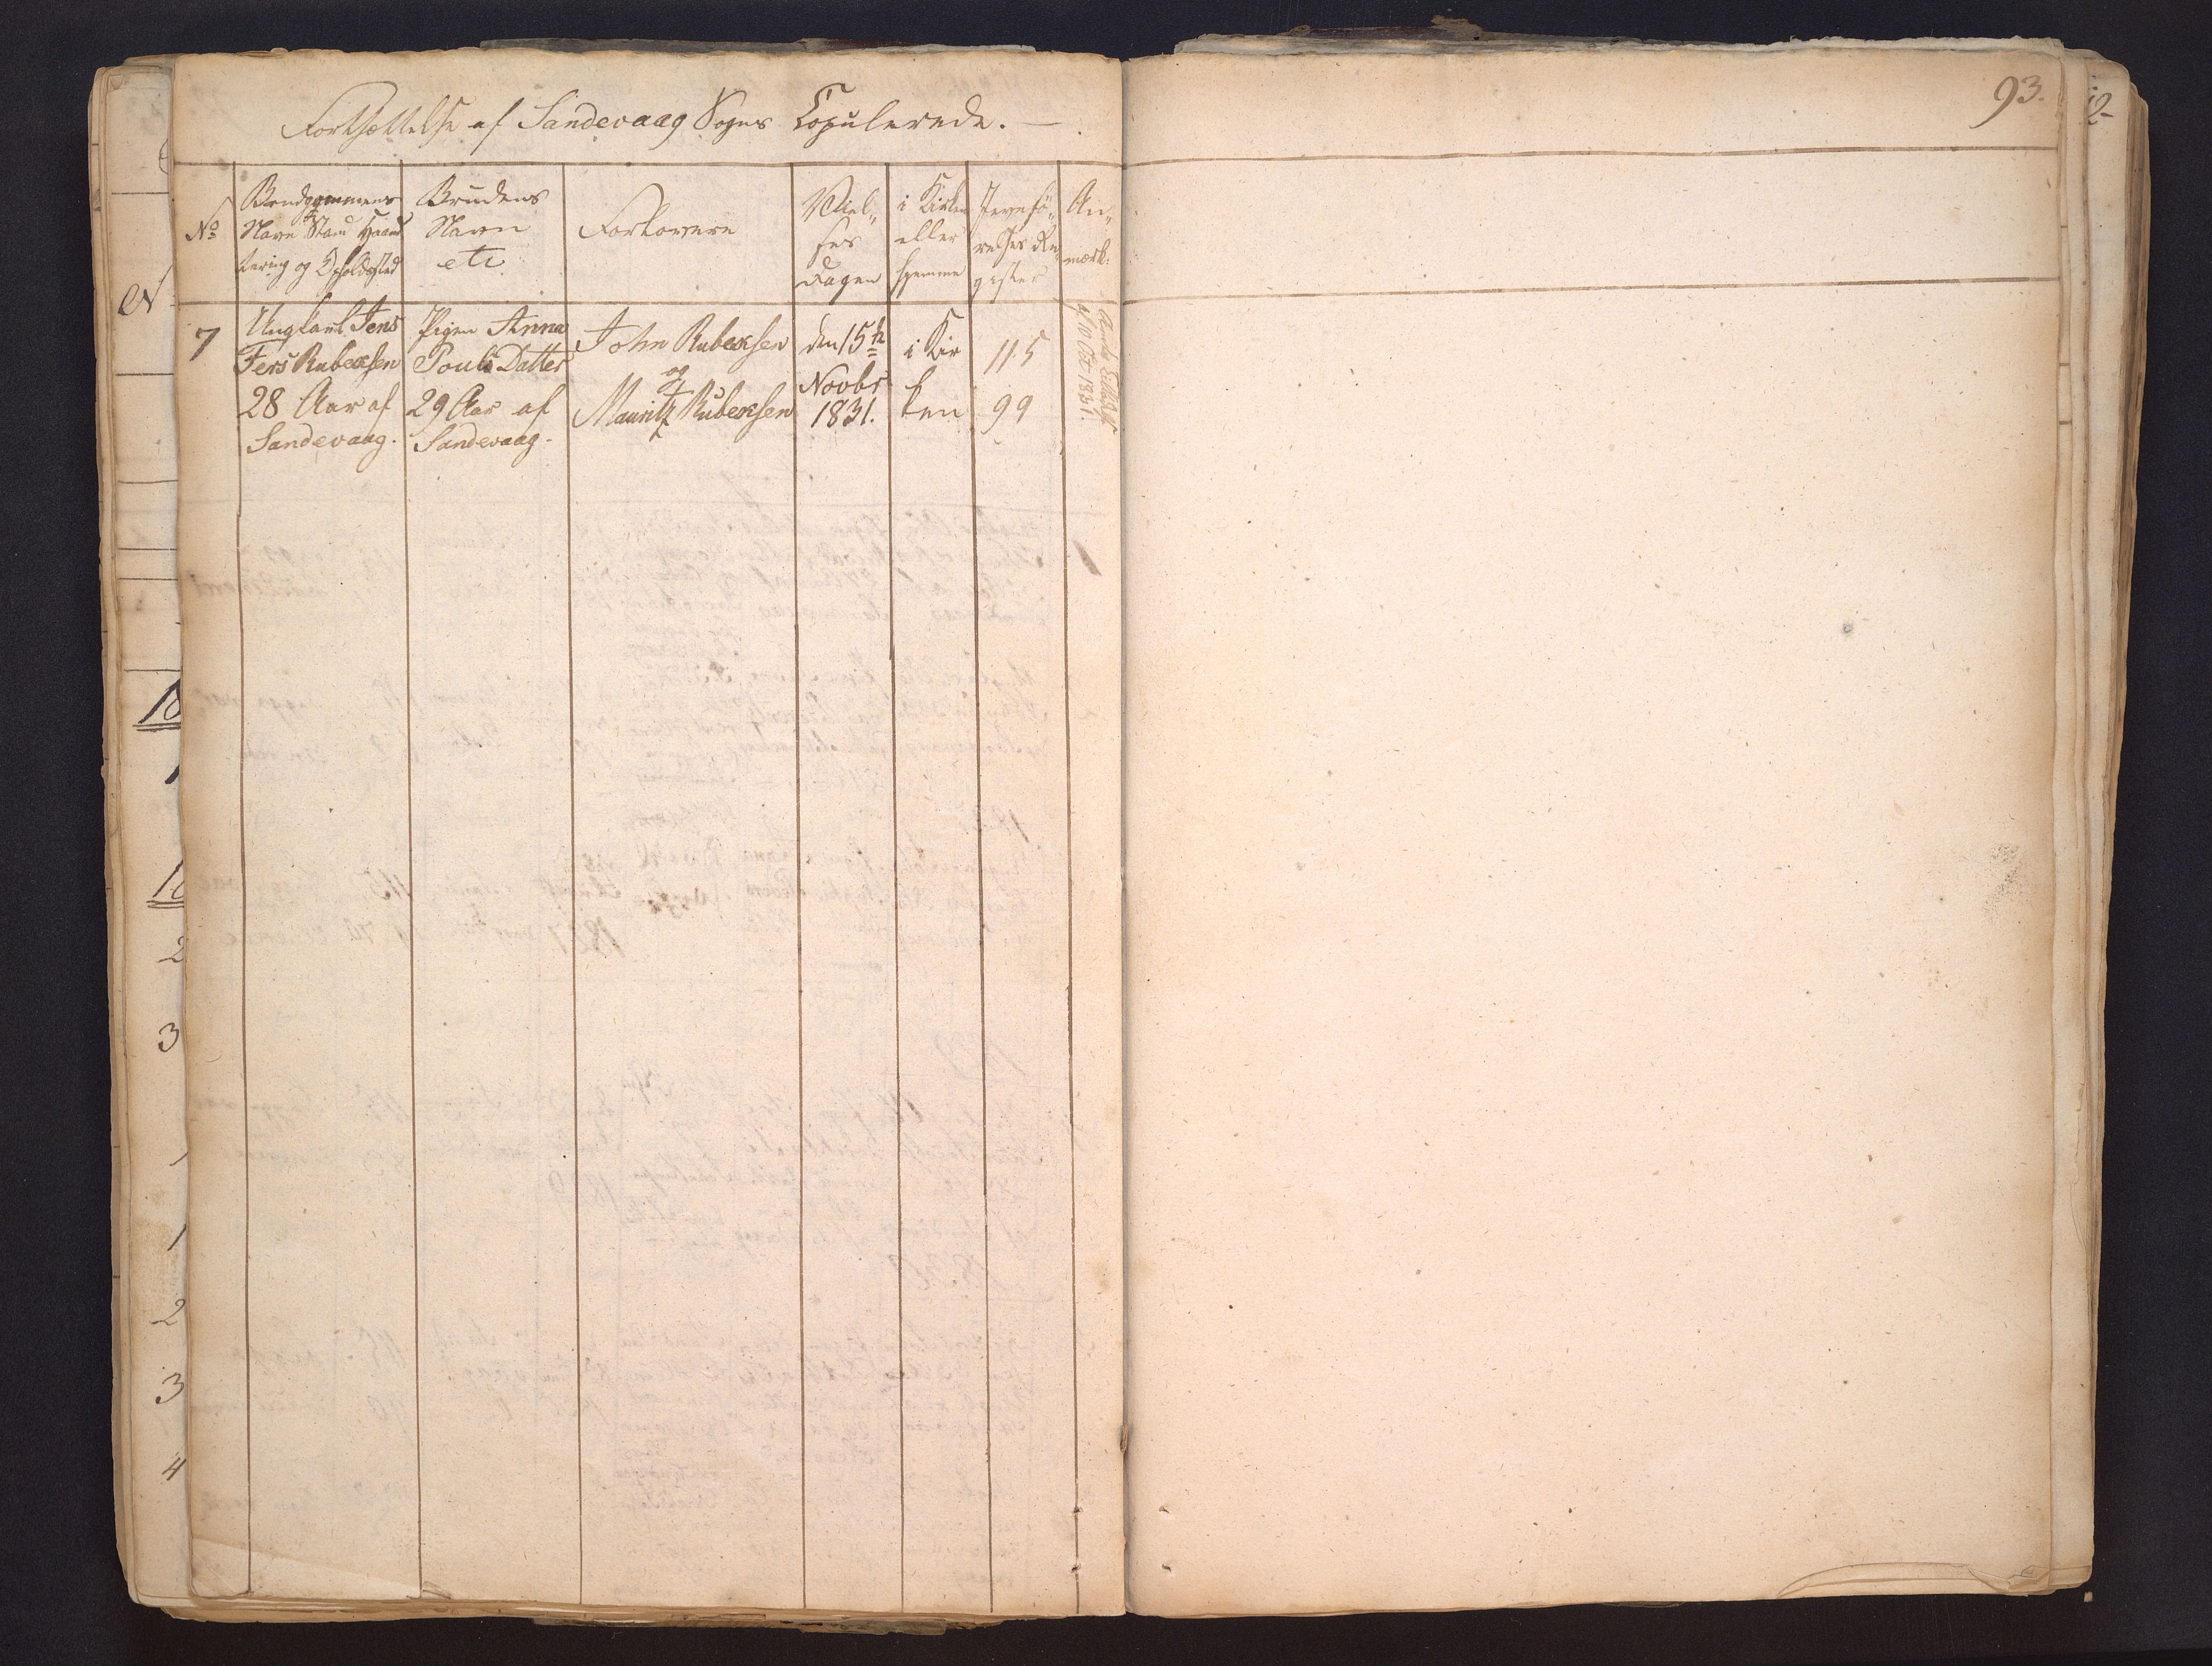 93.
Fortsættelse af Sandevaag Sogns Copulerede. —
No
Brudgommens
Navn Stand Haand
tering og Opholdssted
Brudens
Navn
etc
Forlovere
Viel„
ses
Dagen
i Kirken
eller
hjemme
Jevnfø„
relses Re„
gister
An„
mærk:
7
Ungkarl Jens
Fers Rubeksen
28 Aar af
Sandevaag.
Pigen Anna
Pouls Datter
29 Aar af
Sandevaag.
John Rubeksen
og
Mauritz Rubeksen
den 15de
Novbr
1831.
i Kir
ken
115
99
af 10 Oct 1831.
N
18
1
18
2
3
1
1
2
3
4